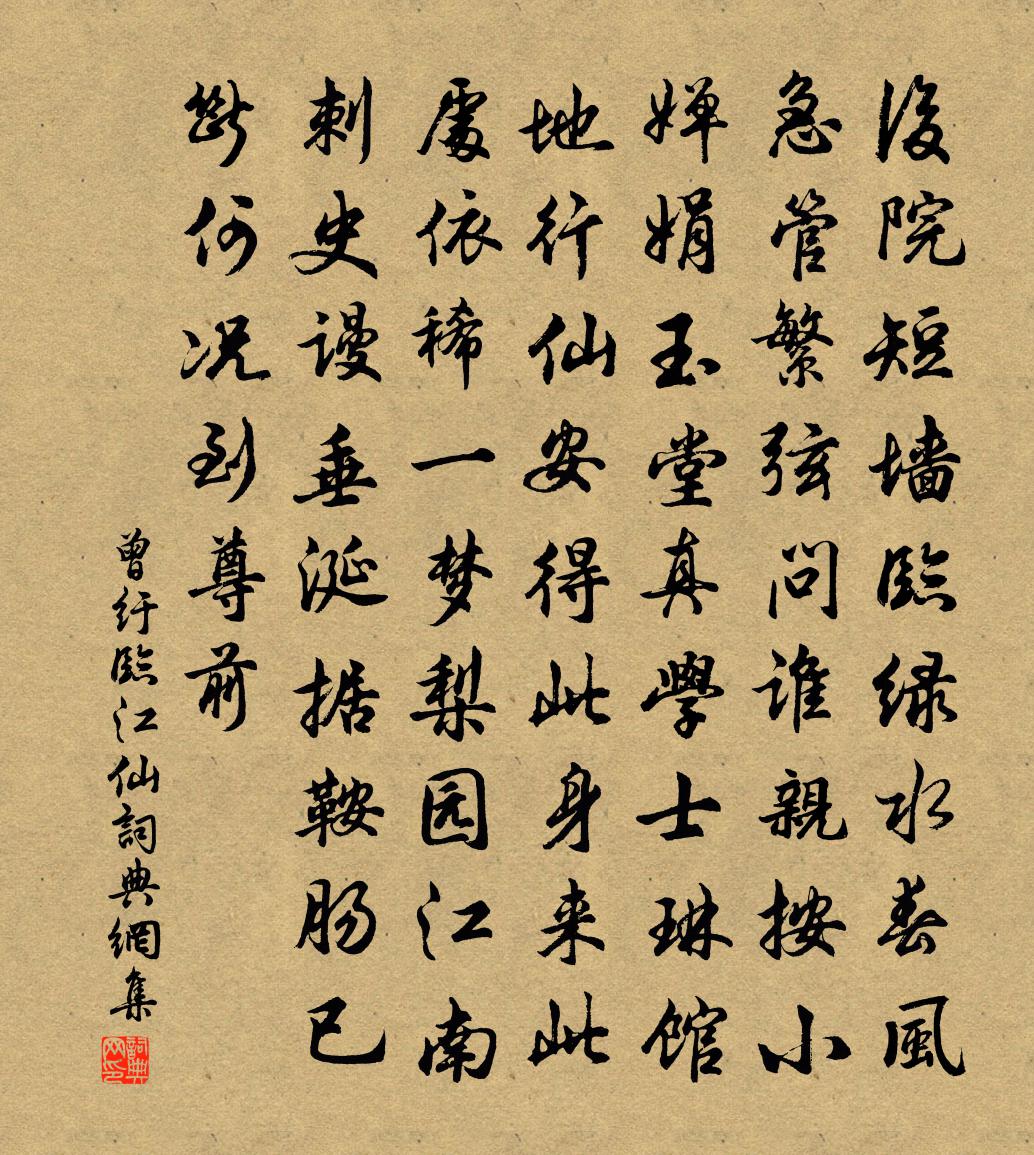 後院短墙臨绿水春風
急管繁弦問谁親按小
婵娟玉堂真學士琳馆
地行仙安得此身来此
處依稀一梦梨园江南
刺史谩垂涎据鞍肠已
斷何况到尊前
曾纡臨江仙詞典網集
詞典
网印